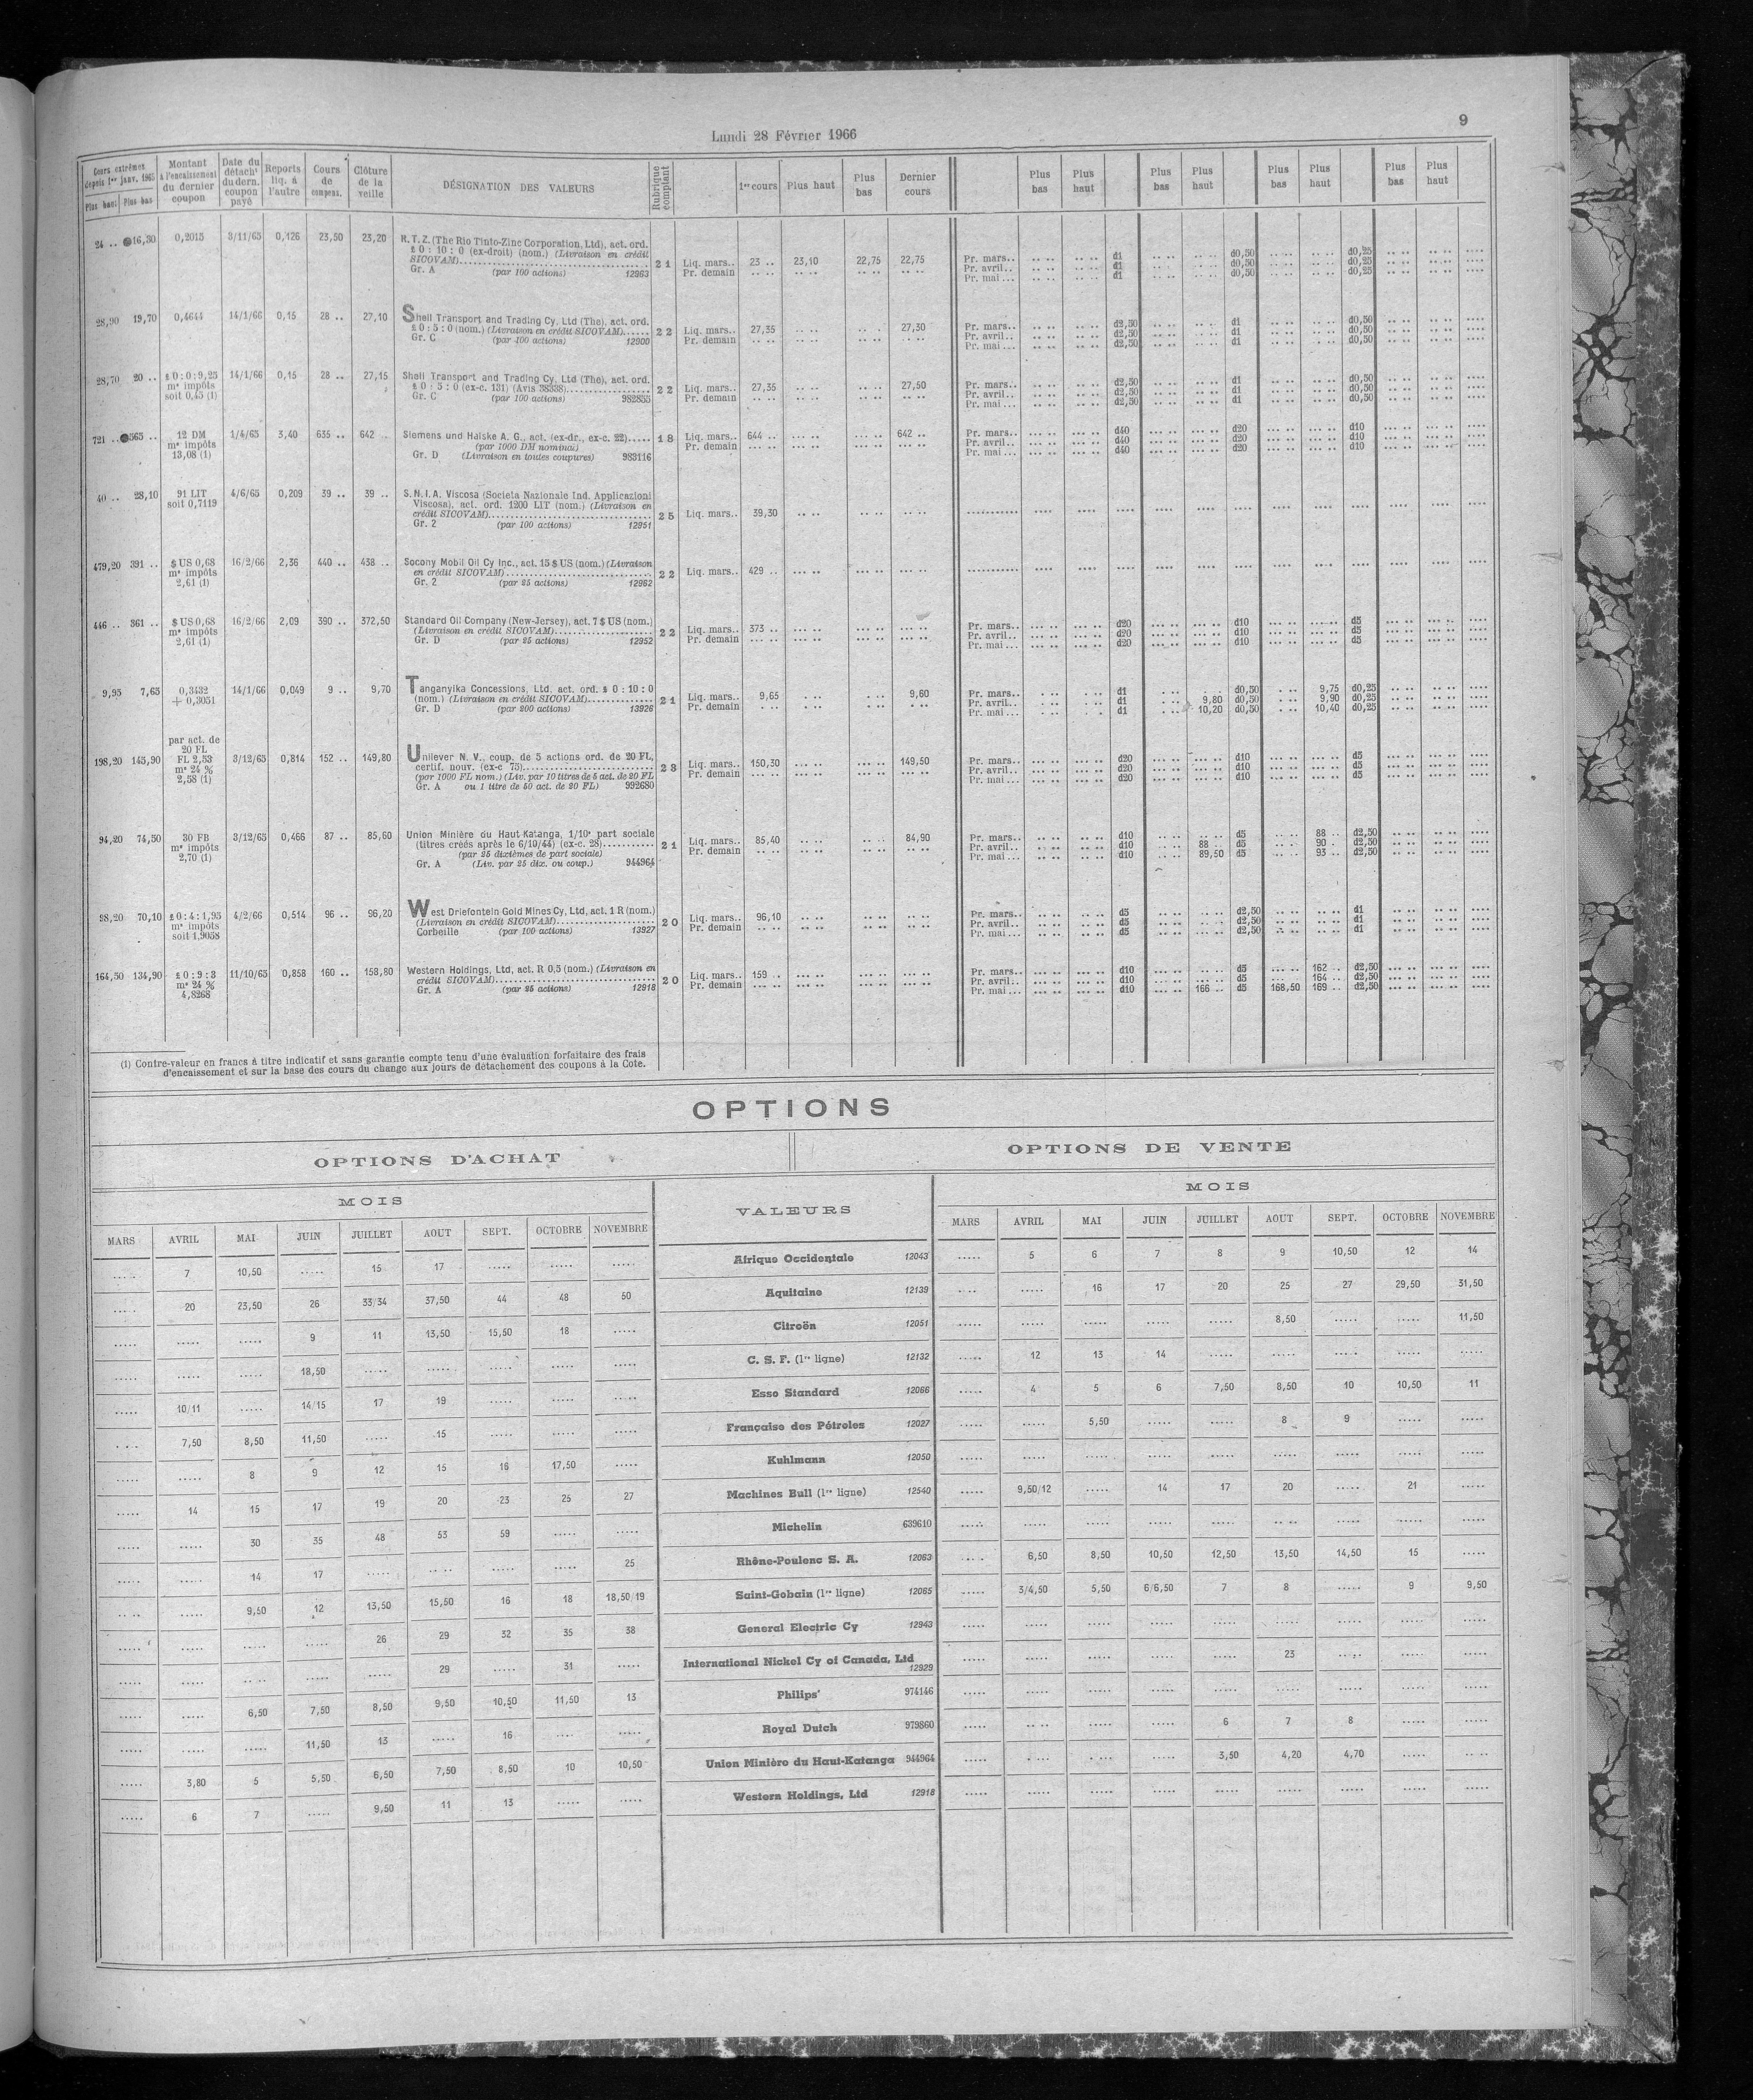 Lundi 28 Février 1966
9
Cours extrêmes depuis 1er janv. 1965 Plus haut Plus bas | Montant à l'encaissement du dernier coupon | Date du détacht du dern. coupon payé | Reports liq. à l'autre | Cours de compens. | Clôture de la veille | DÉSIGNATION DES VALEURS | Rubrique comptant | 1er cours | Plus haut | Plus bas | Dernier cours | Plus bas | Plus haut | Plus bas | Plus haut | Plus bas | Plus haut | Plus bas | Plus haut
24 .. 16,30 0,2015 3/11/65 0,126 23,50 23,20 R.T.Z. (The Rio Tinto-Zinc Corporation, Ltd), act. ord.
£ 0 : 10 : 0 (ex-droit) (nom.) (Livraison en crédit
SICOVAM) 21 Liq. mars.. 23 .. 23,10 22,75 22,75 Pr. mars.. d1 d0,50 d0,25
Gr. A (par 100 actions) 12963 Pr. demain Pr. avril.. d1 d0,50 d0,25
Pr. mai... d1 d0,50 d0,25
28,90 19,70 0,4644 14/1/66 0,15 28 .. 27,10 Shell Transport and Trading Cy, Ltd (The), act. ord.
£ 0 : 5 : 0 (nom.) (Livraison en crédit SICOVAM) 22 Liq. mars.. 27,35 27,30 Pr. mars.. d2,50 d1 d0,50
Gr. C (par 100 actions) 12900 Pr. demain Pr. avril.. d2,50 d1 d0,50
Pr. mai... d2,50 d1 d0,50
28,70 20 .. £ 0 : 0 : 9,25 ms impôts soit 0,45 (1) 14/1/66 0,15 28 .. 27,15 Shell Transport and Trading Cy, Ltd (The), act. ord.
£ 0 : 5 : 0 (ex-c. 131) (Avis 38338) 22 Liq. mars.. 27,35 27,50 Pr. mars.. d2,50 d1 d0,50
Gr. C (par 100 actions) 982855 Pr. demain Pr. avril.. d2,50 d1 d0,50
Pr. mai... d2,50 d1 d0,50
721 .. 565 .. 12 DM ms impôts 13,08 (1) 1/4/65 3,40 635 .. 642 .. Siemens und Halske A. G., act. (ex-dr., ex-c. 22) 18 Liq. mars.. 644 .. 642 .. Pr. mars.. d40 d20 d10
(par 1000 DM nominal) Pr. demain Pr. avril.. d40 d20 d10
Gr. D (Livraison en toutes coupures) 983116 Pr. mai... d40 d20 d10
40 .. 28,10 91 LIT soit 0,7119 4/6/65 0,209 39 .. 39 .. S.N.I.A. Viscosa (Societa Nazionale Ind. Applicazioni
Viscosa), act. ord. 1200 LIT (nom.) (Livraison en
crédit SICOVAM) 25 Liq. mars.. 39,30
Gr. 2 (par 100 actions) 12951
479,20 391 .. $ US 0,68 ms impôts 2,61 (1) 16/2/66 2,36 440 .. 438 .. Socony Mobil Oil Cy Inc., act. 15 $ US (nom.) (Livraison
en crédit SICOVAM) 22 Liq. mars.. 429 ..
Gr. 2 (par 25 actions) 12962
446 .. 361 .. $ US 0,68 ms impôts 2,61 (1) 16/2/66 2,09 390 .. 372,50 Standard Oil Company (New-Jersey), act. 7 $ US (nom.)
(Livraison en crédit SICOVAM) 22 Liq. mars.. 373 .. Pr. mars.. d20 d10 d5
Gr. D (par 25 actions) 12952 Pr. demain Pr. avril.. d20 d10 d5
Pr. mai... d20 d10 d5
9,95 7,65 0,3432 + 0,3051 14/1/66 0,049 9 .. 9,70 Tanganyika Concessions, Ltd, act. ord. £ 0 : 10 : 0
(nom.) (Livraison en crédit SICOVAM) 21 Liq. mars.. 9,65 9,60 Pr. mars.. d1 d0,50 9,75 d0,25
Gr. D (par 200 actions) 13926 Pr. demain Pr. avril.. d1 9,80 d0,50 9,90 d0,25
Pr. mai... d1 10,20 d0,50 10,40 d0,25
198,20 145,90 par act. de 20 FL FL 2,53 ms 24 % 2,58 (1) 3/12/65 0,814 152 .. 149,80 Unilever N. V., coup. de 5 actions ord. de 20 FL,
certif. nouv. (ex-c 75) 23 Liq. mars.. 150,30 149,50 Pr. mars.. d20 d10 d5
(par 1000 FL nom.) (Liv. par 10 titres de 5 act. de 20 FL Pr. demain Pr. avril.. d20 d10 d5
Gr. A ou 1 titre de 50 act. de 20 FL) 992680 Pr. mai... d20 d10 d5
94,20 74,50 30 FB ms impôts 2,70 (1) 3/12/65 0,466 87 .. 85,60 Union Minière du Haut-Katanga, 1/10e part sociale
(titres créés après le 6/10/44) (ex-c. 28) 21 Liq. mars.. 85,40 84,90 Pr. mars.. d10 d5 88 .. d2,50
(par 25 dixièmes de part sociale) Pr. demain Pr. avril.. d10 88 .. d5 90 .. d2,50
Gr. A (Liv. par 25 dix. ou coup.) 944964 Pr. mai... d10 89,50 d5 93 .. d2,50
98,20 70,10 £ 0 : 4 : 1,95 ms impôts soit 1,9058 4/2/66 0,514 96 .. 96,20 West Driefontein Gold Mines Cy, Ltd, act. 1 R (nom.)
(Livraison en crédit SICOVAM) 20 Liq. mars.. 96,10 Pr. mars.. d5 d2,50 d1
Corbeille (par 100 actions) 13927 Pr. demain Pr. avril.. d5 d2,50 d1
Pr. mai... d5 d2,50 d1
164,50 134,90 £ 0 : 9 : 3 ms 24 % 4,8268 11/10/65 0,858 160 .. 158,80 Western Holdings, Ltd, act. R 0,5 (nom.) (Livraison en
crédit SICOVAM) 20 Liq. mars.. 159 .. Pr. mars.. d10 d5 162 .. d2,50
Gr. A (par 25 actions) 12918 Pr. demain Pr. avril.. d10 d5 164 .. d2,50
Pr. mai... d10 166 .. d5 168,50 169 .. d2,50
(1) Contre-valeur en francs à titre indicatif et sans garantie compte tenu d'une évaluation forfaitaire des frais
d'encaissement et sur la base des cours du change aux jours de détachement des coupons à la Cote.
OPTIONS
OPTIONS D'ACHAT
OPTIONS DE VENTE
MOIS | VALEURS | MOIS
MARS | AVRIL | MAI | JUIN | JUILLET | AOUT | SEPT. | OCTOBRE | NOVEMBRE | MARS | AVRIL | MAI | JUIN | JUILLET | AOUT | SEPT. | OCTOBRE | NOVEMBRE
..... | 7 | 10,50 | ..... | 15 | 17 | ..... | ..... | ..... | Afrique Occidentale 12043 | ..... | 5 | 6 | 7 | 8 | 9 | 10,50 | 12 | 14
..... | 20 | 23,50 | 26 | 33/34 | 37,50 | 44 | 48 | 50 | Aquitaine 12139 | ..... | ..... | 16 | 17 | 20 | 25 | 27 | 29,50 | 31,50
..... | ..... | ..... | 9 | 11 | 13,50 | 15,50 | 18 | ..... | Citroën 12051 | ..... | ..... | ..... | ..... | ..... | 8,50 | ..... | ..... | 11,50
..... | ..... | ..... | 18,50 | ..... | ..... | ..... | ..... | ..... | C. S. F. (1re ligne) 12132 | ..... | 12 | 13 | 14 | ..... | ..... | ..... | ..... | .....
..... | 10/11 | ..... | 14/15 | 17 | 19 | ..... | ..... | ..... | Esso Standard 12066 | ..... | 4 | 5 | 6 | 7,50 | 8,50 | 10 | 10,50 | 11
..... | 7,50 | 8,50 | 11,50 | ..... | 15 | ..... | ..... | ..... | Française des Pétroles 12027 | ..... | ..... | 5,50 | ..... | ..... | 8 | 9 | ..... | .....
..... | ..... | 8 | 9 | 12 | 15 | 16 | 17,50 | ..... | Kuhlmann 12050 | ..... | ..... | ..... | ..... | ..... | ..... | ..... | ..... | .....
..... | 14 | 15 | 17 | 19 | 20 | 23 | 25 | 27 | Machines Bull (1re ligne) 12540 | ..... | 9,50/12 | ..... | 14 | 17 | 20 | ..... | 21 | .....
..... | ..... | 30 | 35 | 48 | 53 | 59 | ..... | ..... | Michelin 639610 | ..... | ..... | ..... | ..... | ..... | ..... | ..... | ..... | .....
..... | ..... | 14 | 17 | ..... | ..... | ..... | ..... | 25 | Rhône-Poulenc S. A. 12063 | ..... | 6,50 | 8,50 | 10,50 | 12,50 | 13,50 | 14,50 | 15 | .....
..... | ..... | 9,50 | 12 | 13,50 | 15,50 | 16 | 18 | 18,50/19 | Saint-Gobain (1re ligne) 12065 | ..... | 3/4,50 | 5,50 | 6/6,50 | 7 | 8 | ..... | 9 | 9,50
..... | ..... | ..... | ..... | 26 | 29 | 32 | 35 | 38 | General Electric Cy 12943 | ..... | ..... | ..... | ..... | ..... | ..... | ..... | ..... | .....
..... | ..... | ..... | ..... | ..... | 29 | ..... | 31 | ..... | International Nickel Cy of Canada, Ltd 12929 | ..... | ..... | ..... | ..... | ..... | 23 | ..... | ..... | .....
..... | ..... | 6,50 | 7,50 | 8,50 | 9,50 | 10,50 | 11,50 | 13 | Philips' 974146 | ..... | ..... | ..... | ..... | ..... | ..... | ..... | ..... | .....
..... | ..... | ..... | 11,50 | 13 | ..... | 16 | ..... | ..... | Royal Dutch 979860 | ..... | ..... | ..... | ..... | 6 | 7 | 8 | ..... | .....
..... | 3,80 | 5 | 5,50 | 6,50 | 7,50 | 8,50 | 10 | 10,50 | Union Minière du Haut-Katanga 944964 | ..... | ..... | ..... | ..... | 3,50 | 4,20 | 4,70 | ..... | .....
..... | 6 | 7 | ..... | 9,50 | 11 | 13 | ..... | ..... | Western Holdings, Ltd 12918 | ..... | ..... | ..... | ..... | ..... | ..... | ..... | ..... | .....